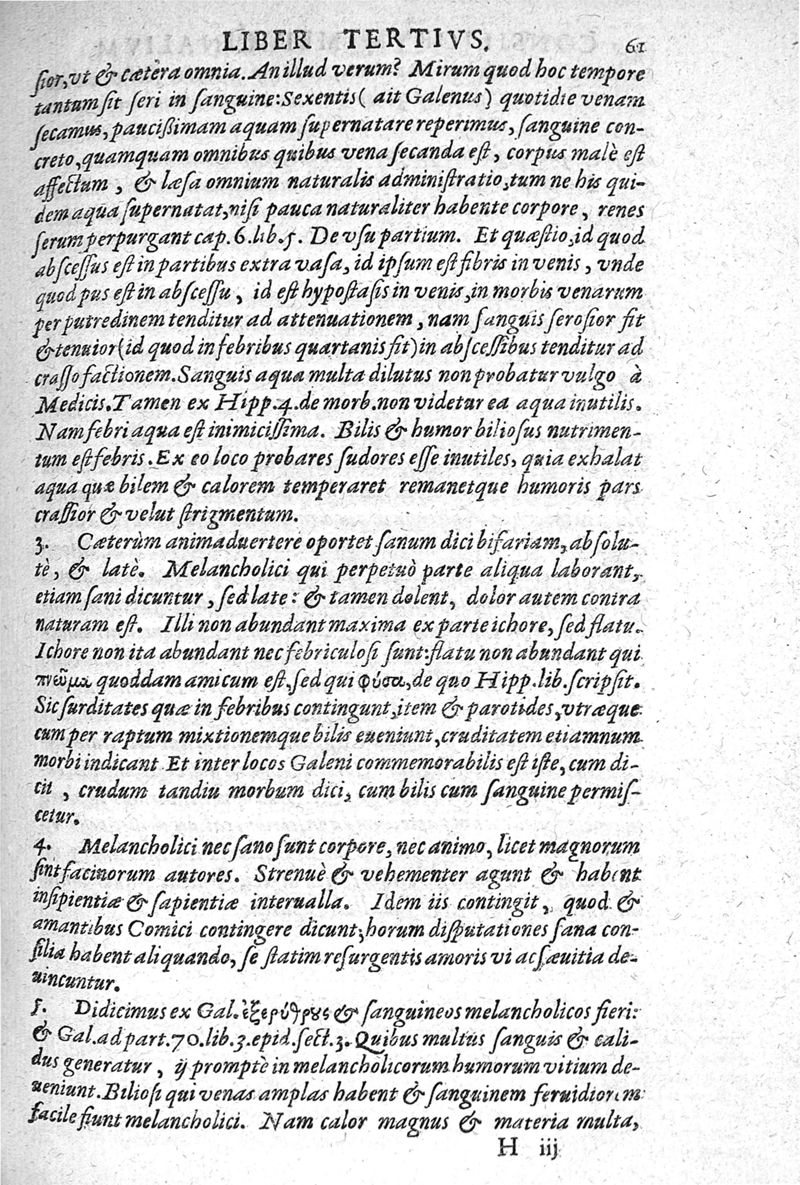 LIBER TERTIVS. 61
sior, vt & cætera omnia. An illud verum? Mirum quod hoc tempore
tantum sit seri in sanguine: Sexentis ( ait Galenus ) quotidie venam
secamus, paucißimam aquam supernatare reperimus, sanguine con-
creto, quamquam omnibus quibus vena secanda est, corpus malè est
affectum, & læsa omnium naturalis administratio, tum ne his qui-
dem aqua supernatat, nisi pauca naturaliter habente corpore, renes
serum perpurgant cap. 6. lib. 5. De vsu partium. Et quæstio, id quod
abscessus est in partibus extra vasa, id ipsum est fibris in venis, vnde
quod pus est in abscessu, id est hypostasis in venis, in morbis venarum
per putredinem tenditur ad attenuationem, nam sanguis serosior fit
& tenuior (id quod in febribus quartanis fit) in abscessibus tenditur ad
crassofactionem. Sanguis aqua multa dilutus non probatur vulgo à
Medicis. Tamen ex Hipp. 4. de morb. non videtur ea aqua inutilis.
Nam febri aqua est inimicissima. Bilis & humor biliosus nutrimen-
tum est febris. Ex eo loco probares sudores esse inutiles, quia exhalat
aqua quæ bilem & calorem temperaret remanetque humoris pars
crassior & velut strigmentum.
3. Cæterùm animaduertere oportet sanum dici bifariam, absolu-
tè, & latè. Melancholici qui perpetuò parte aliqua laborant,
etiam sani dicuntur, sed late: & tamen dolent, dolor autem contra
naturam est. Illi non abundant maxima ex parte ichore, sed flatu.
Ichore non ita abundant nec febriculosi sunt: flatu non abundant qui
πνεῦμα quoddam amicum est, sed qui φύσαι, de quo Hipp. lib. scripsit.
Sic surditates quæ in febribus contingunt, item & parotides, vtræque
cum per raptum mixtionemque bilis eueniunt, cruditatem etiamnum
morbi indicant. Et inter locos Galeni commemorabilis est iste, cum di-
cit, crudum tandiu morbum dici, cum bilis cum sanguine permis-
cetur.
4. Melancholici nec sano sunt corpore, nec animo, licet magnorum
sint facinorum autores. Strenuè & vehementer agunt & habent
insipientiæ & sapientiæ interualla. Idem iis contingit, quod &
amantibus Comici contingere dicunt, horum disputationes sana con-
silia habent aliquando, se statim resurgentis amoris vi ac sæuitia de-
uincuntur.
5. Didicimus ex Gal. ἐξερύθρους & sanguineos melancholicos fieri:
& Gal. ad part. 70. lib. 3. epid. sect. 3. Quibus multus sanguis & cali-
dus generatur, ij promptè in melancholicorum humorum vitium de-
ueniunt. Biliosi qui venas amplas habent & sanguinem feruidiorem
facile fiunt melancholici. Nam calor magnus & materia multa,
H iij